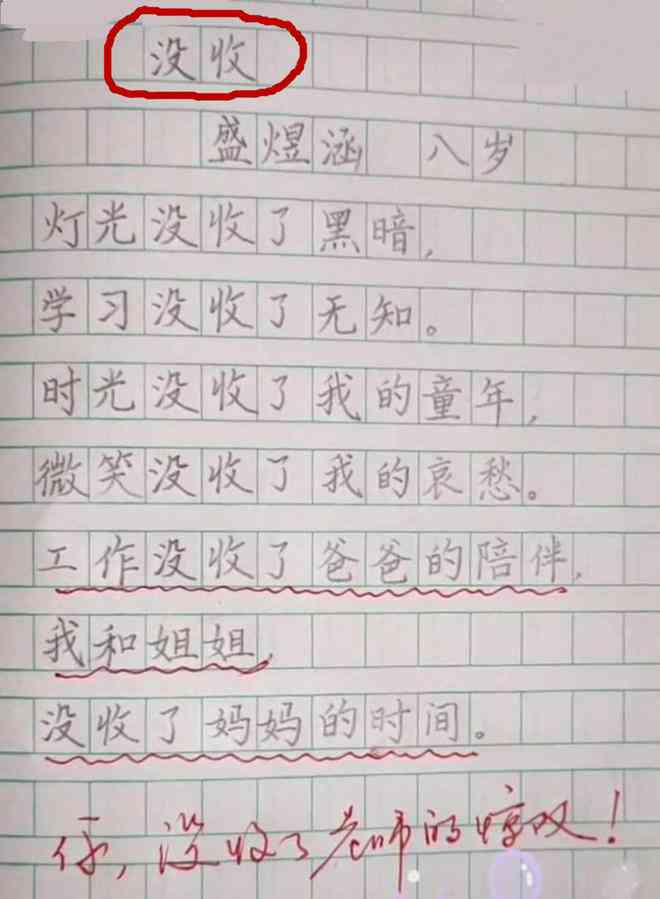 没收
盛煜涵 八岁
灯光没收了黑暗,
学习没收了无知。
时光没收了我的童年,
微笑没收了我的哀愁。
工作没收了爸爸的陪伴,
我和姐姐,
没收了妈妈的时间。
你,没收了老师的惊叹!